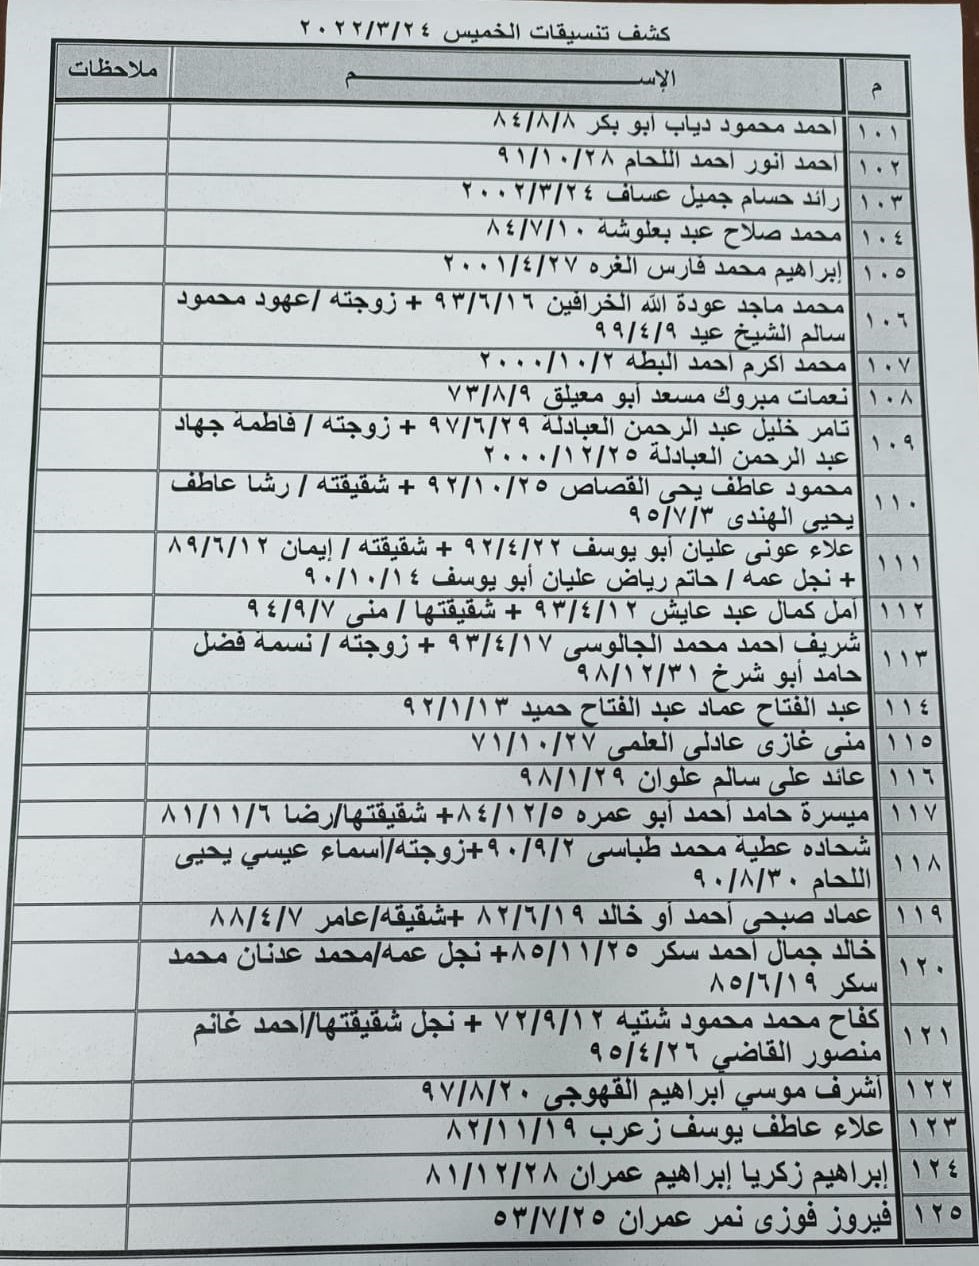 كشف تنسيقات الخميس ٢٠٢٢/٣/٢٤
م الإســـــــم ملاحظات
١٠١ أحمد محمود دياب أبو بكر ٨٤/٨/٨
١٠٢ أحمد أنور أحمد اللحام ٩١/١٠/٢٨
١٠٣ رائد حسام جميل عساف ٢٠٠٢/٣/٢٤
١٠٤ محمد صلاح عبد بعلوشة ٨٤/٧/١٠
١٠٥ إبراهيم محمد فارس الغره ٢٠٠١/٤/٢٧
١٠٦ محمد ماجد عودة الله الخرافين ٩٣/٦/١٦ + زوجته /عهود محمود
سالم الشيخ عيد ٩٩/٤/٩
١٠٧ محمد أكرم أحمد البطه ٢٠٠٠/١٠/٢
١٠٨ نعمات مبروك مسعد أبو معيلق ٧٣/٨/٩
١٠٩ تامر خليل عبد الرحمن العبادلة ٩٧/٦/٢٩ + زوجته / فاطمة جهاد
عبد الرحمن العبادلة ٢٠٠٠/١٢/٢٥
١١٠ محمود عاطف يحى القصاص ٩٢/١٠/٢٥ + شقيقته / رشا عاطف
يحيى الهندى ٩٥/٧/٣
١١١ علاء عونى عليان أبو يوسف ٩٢/٤/٢٢ + شقيقته / إيمان ٨٩/٦/١٢
+ نجل عمه / حاتم رياض عليان أبو يوسف ٩٠/١٠/١٤
١١٢ أمل كمال عبد عايش ٩٣/٤/١٢ + شقيقتها / منى ٩٤/٩/٧
١١٣ شريف أحمد محمد الجالوسى ٩٣/٤/١٧ + زوجته / نسمة فضل
حامد أبو شرخ ٩٨/١٢/٣١
١١٤ عبد الفتاح عماد عبد الفتاح حميد ٩٢/١/١٣
١١٥ منى غازى عادلى العلمى ٧١/١٠/٢٧
١١٦ عائد على سالم علوان ٩٨/١/٢٩
١١٧ ميسرة حامد أحمد أبو عمره ٨٤/١٢/٥+ شقيقتها/رضا ٨١/١١/٦
١١٨ شحاده عطية محمد طباسى ٩٠/٩/٢+زوجته/أسماء عيسي يحيى
اللحام ٩٠/٨/٣٠
١١٩ عماد صبحى أحمد أو خالد ٨٢/٦/١٩ +شقيقه/عامر ٨٨/٤/٧
١٢٠ خالد جمال أحمد سكر ٨٥/١١/٢٥+ نجل عمه/محمد عدنان محمد
سكر ٨٥/٦/١٩
١٢١ كفاح محمد محمود شتيه ٧٢/٩/١٢ + نجل شقيقتها/أحمد غانم
منصور القاضي ٩٥/٤/٢٦
١٢٢ أشرف موسي ابراهيم القهوجى ٩٧/٨/٢٠
١٢٣ علاء عاطف يوسف زعرب ٨٢/١١/١٩
١٢٤ إبراهيم زكريا إبراهيم عمران ٨١/١٢/٢٨
١٢٥ فيروز فوزى نمر عمران ٥٣/٧/٢٥